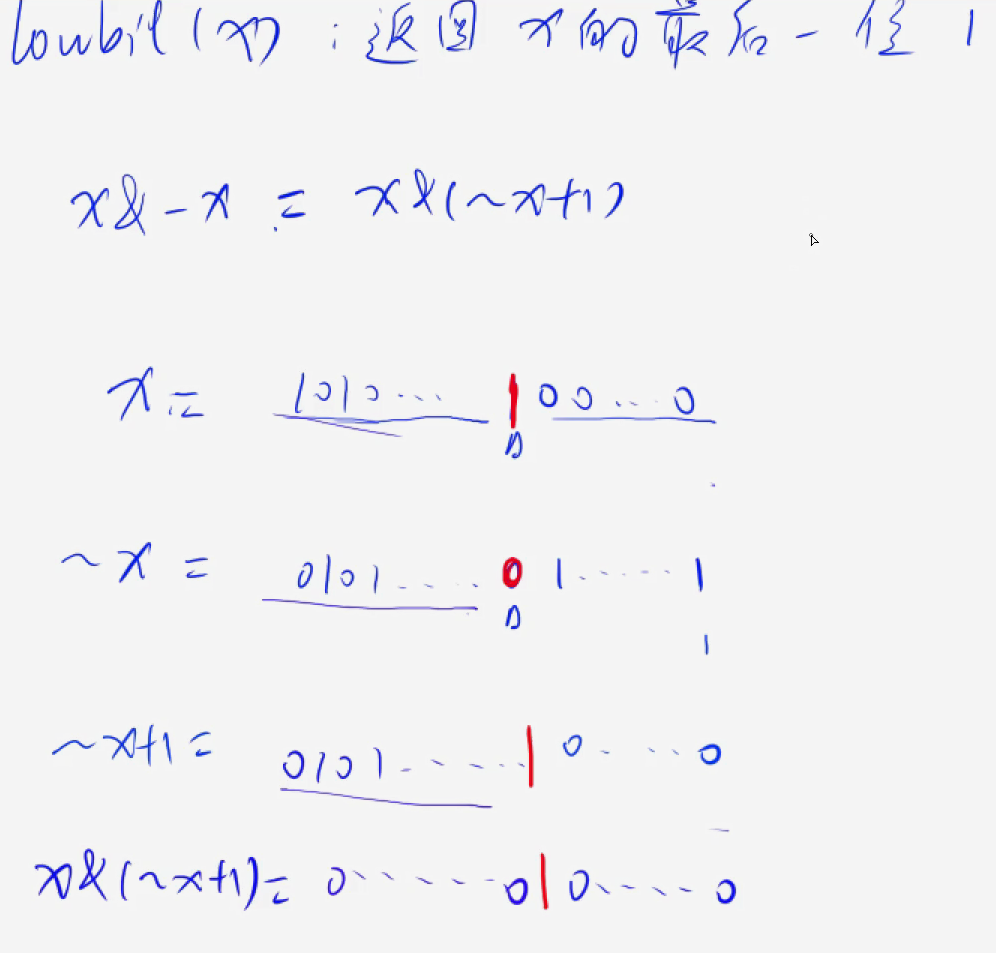 lowbit(x) : 返回 x的最后一位1
x&-x = x&(~x+1)
x = 1010... 100...0
~x = 0101.... 01.....1
1
~x+1 = 0101..... 10....0
x&(~x+1) = 0.....010....0